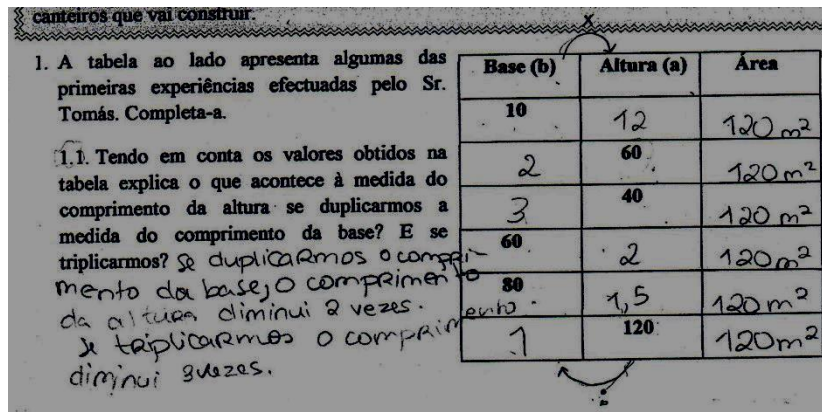 canteiros que vai construir.
x
1. A tabela ao lado apresenta algumas das
primeiras experiências efectuadas pelo Sr.
Tomás. Completa-a.
1.1. Tendo em conta os valores obtidos na
tabela explica o que acontece à medida do
comprimento da altura se duplicarmos a
medida do comprimento da base? E se
triplicarmos? Se duplicarmos o compri-
mento da base, o comprimento
da altura diminui 2 vezes.
Se triplicarmos o comprimento
diminui 3 vezes.
Base (b) Altura (a) Área
10 12 120 m²
2 60 120 m²
3 40 120 m²
60 2 120 m²
80 1,5 120 m²
1 120 120 m²
÷